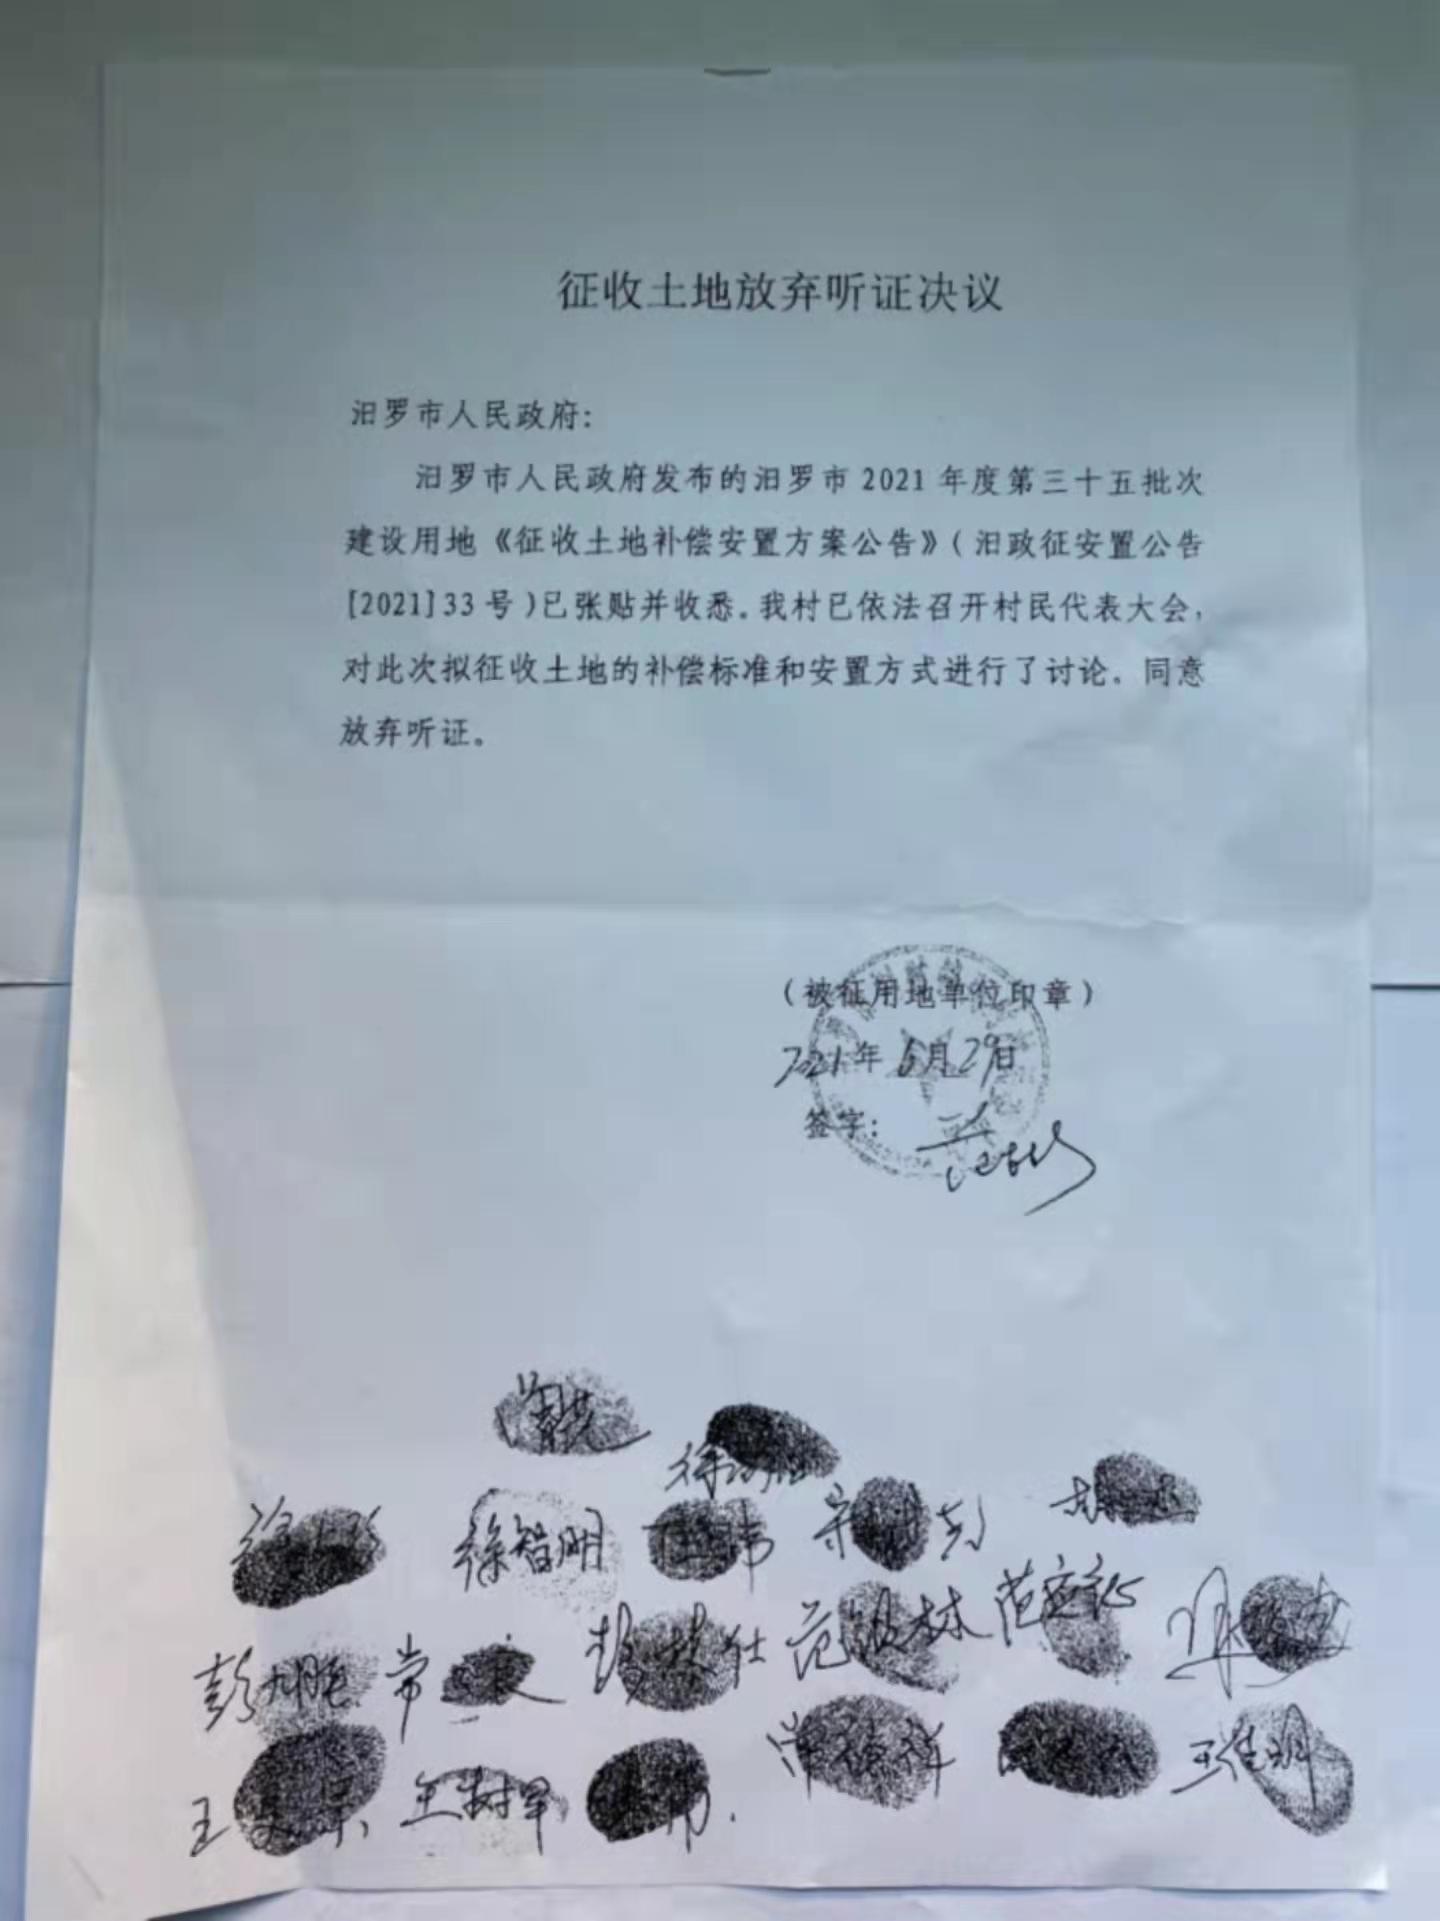 征收土地放弃听证决议
汨罗市人民政府：
汨罗市人民政府发布的汨罗市 2021 年度第三十五批次
建设用地《征收土地补偿安置方案公告》（汨政征安置公告
[2021]33 号）已张贴并收悉。我村已依法召开村民代表大会，
对此次拟征收土地的补偿标准和安置方式进行了讨论。同意
放弃听证。
（被征用地单位印章）
2021年 6月29日
签字：
徐智明
彭 常
范 林
王树军 常德祥 王佳明